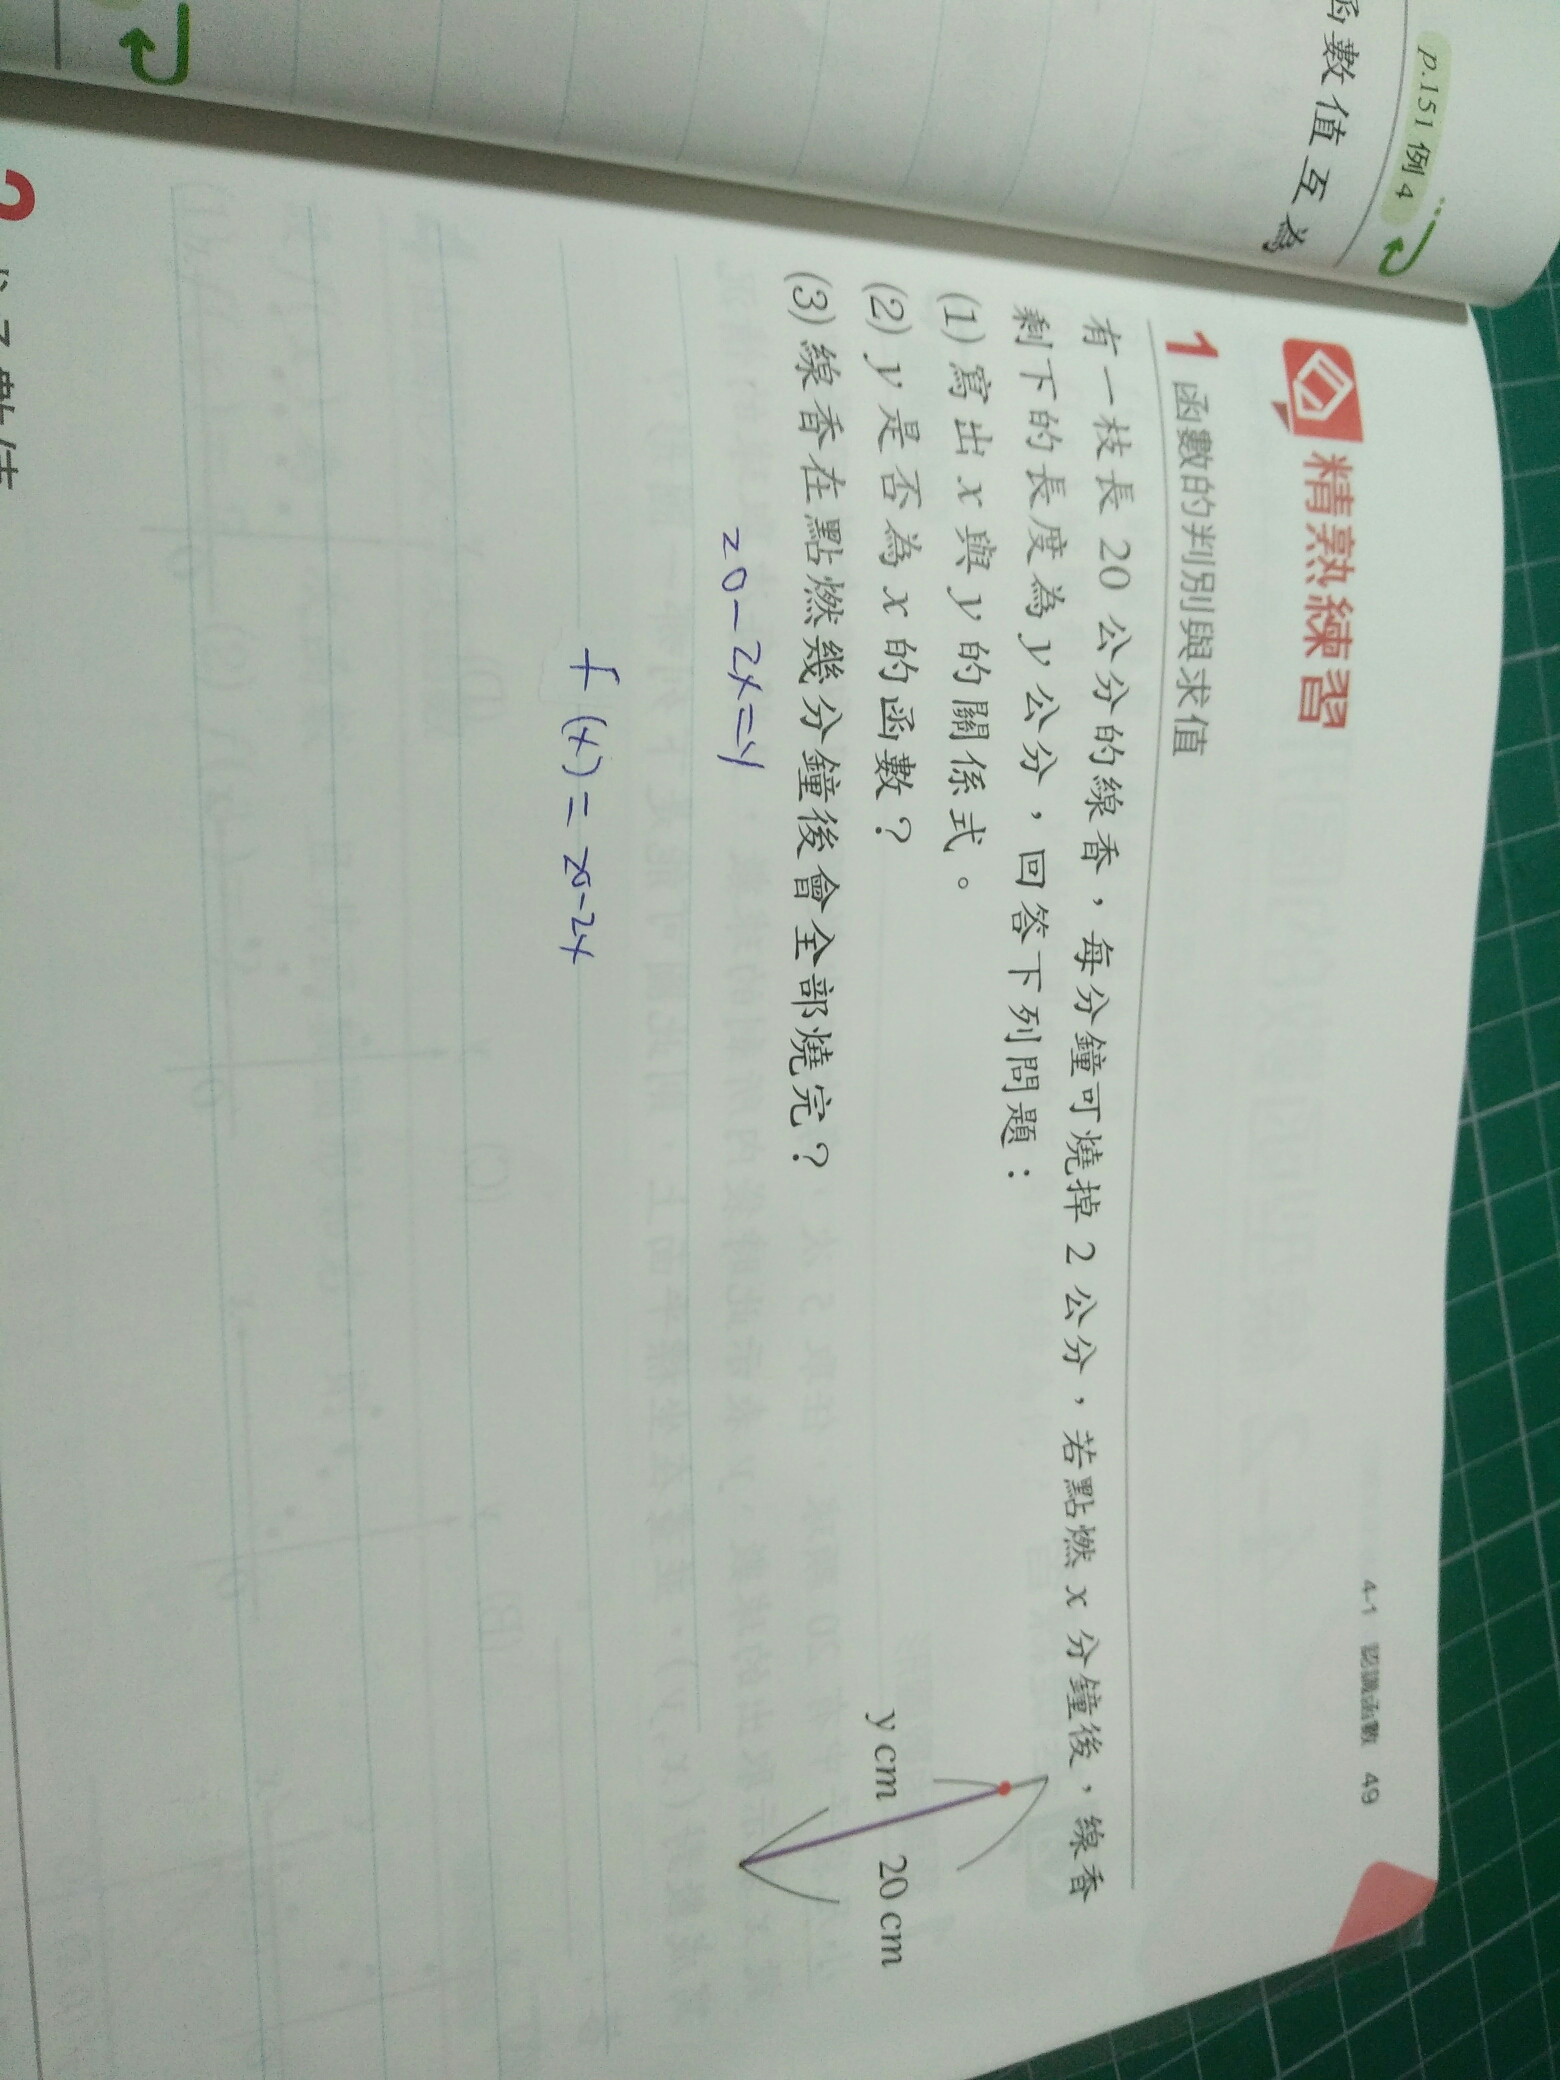 p.151 例 4
函數值互為
4-1 認識函數 49
精熟練習
1 函數的判別與求值
有一枝長 20 公分的線香，每分鐘可燒掉 2 公分，若點燃 x 分鐘後，線香
剩下的長度為 y 公分，回答下列問題：
(1) 寫出 x 與 y 的關係式。
(2) y 是否為 x 的函數？
(3) 線香在點燃幾分鐘後會全部燒完？
y cm
20 cm
20-2x=y
f(x)=20-2x